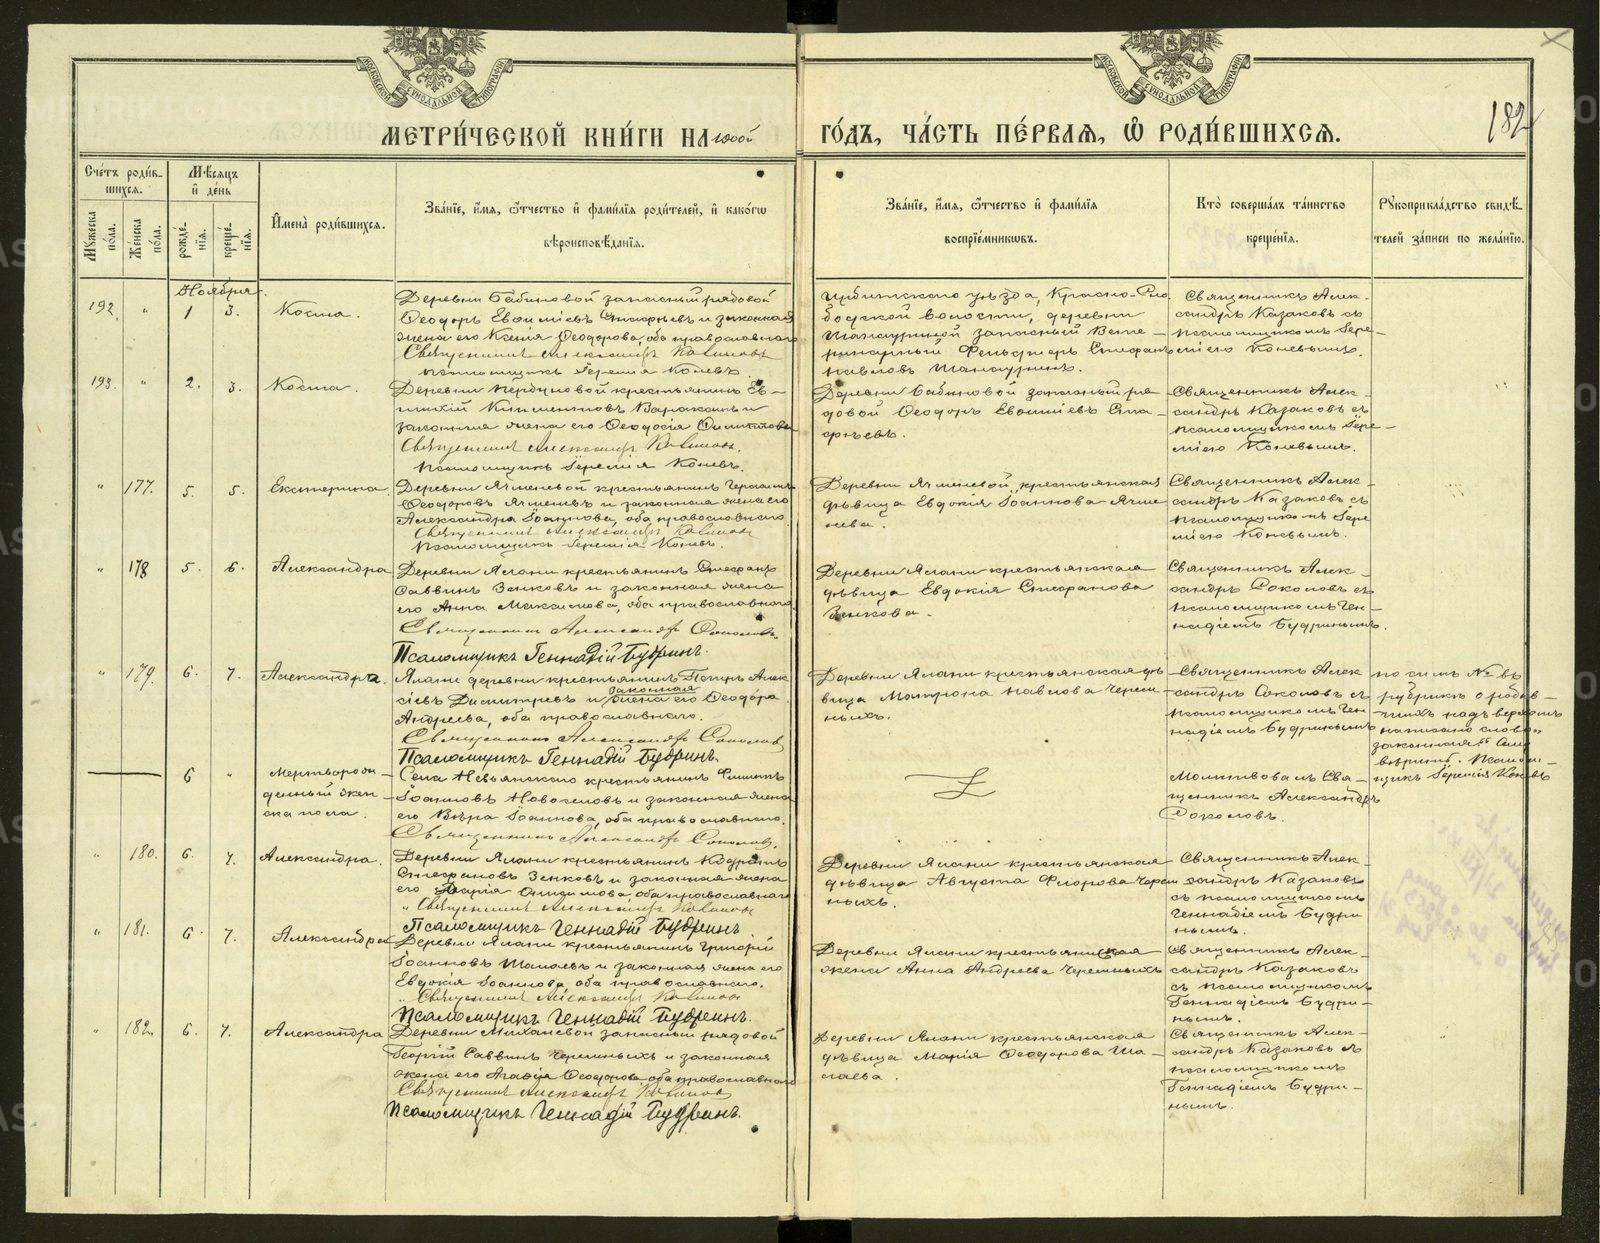 МОСКОВСКОЙ СѴНОДАЛЬНОЙ ТИПОГРАФІИ
МОСКОВСКОЙ СѴНОДАЛЬНОЙ ТИПОГРАФІИ
182
МЕТРИ́ЧЕСКОЙ КНИ́ГИ НА
ГО́ДЪ, ЧА́СТЬ ПЕ́РВАѦ, Ѡ҆ РОДИ́ВШИХСѦ.
Сче́тъ роди́в-
шихсѧ.
Мꙋжеска по́ла.
Же́нска по́ла.
Мѣ́сѧцъ и҆ де́нь
рожде́нїѧ.
креще́нїѧ.
И҆мена̀ роди́вшихсѧ.
Зва́нїе, и҆́мѧ, ѻ҆́тчество и҆ фамилїѧ роди́телей, и҆ како́гѡ
вѣроисповѣ́данїѧ.
Зва́нїе, и҆́мѧ, ѻ҆́тчество и҆ фами́лїѧ
воспрїе́мникѡвъ.
Кто̀ соверша́лъ та́инство
креще́нїѧ.
Рꙋкоприкла́дство свидѣ́-
телей за́писи по жела́нїю.
Ноября
192. " 1 3. Коста.
Деревни Бабиновой запасный рядовой
Ѳеодоръ Евѳиміевъ и законная
жена его Ксенія Ѳеодорова, оба православнаго
Священникъ Александръ Казаковъ
Псаломщикъ Іеремія Коневъ.
Ирбитскаго уѣзда, Красно-Сло
бодской волости, деревни
запасный Вете-
ринарный Фельдшеръ Стефанъ
Павловъ
Священникъ Алек-
сандръ Казаковъ съ
псаломщикомъ Іере-
міею Коневымъ.
193. " 2. 3. Коста.
крестьянинъ Ев-
и
законная жена его Ѳеодосія
Священникъ Александръ Казаковъ
Псаломщикъ Іеремія Коневъ.
Деревни Бабиновой запасный ря-
довой Ѳеодоръ Евѳиміевъ
Священникъ Алек-
сандръ Казаковъ съ
псаломщикомъ Іере-
міею Коневымъ.
" 177. 5. 5. Екатерина.
Деревни Ячменевой крестьянинъ
Ѳеодоровъ Ячменевъ и законная жена его
Александра Іоаннова, оба православнаго.
Священникъ Александръ Казаковъ
Псаломщикъ Іеремія Коневъ.
Деревни Ячменевой, крестьянская
дѣвица Евдокія Іоаннова Ячме
нева.
Священникъ Алек-
сандръ Казаковъ съ
псаломщикомъ Іере
міею Коневымъ.
" 178 5. 6. Александра
Деревни Ялани крестьянинъ Стефанъ
Саввинъ Зенковъ и законная жена
его Анна Максимова, оба православнаго.
Священникъ Александръ Соколовъ.
Псаломщикъ Геннадій Будринъ.
Деревни Ялани крестьянская
дѣвица Евдокія Стефанова
Зенкова.
Священникъ Алек-
сандръ Соколовъ съ
псаломщикомъ Ген-
надіемъ Будринымъ.
" 179. 6. 7. Александра.
Ялани деревни крестьянинъ Петръ Алек
сіевъ Димитріевъ и законная жена его Ѳеодора
Андреева, оба православнаго.
Священникъ Александръ Соколовъ
Псаломщикъ Геннадій Будринъ.
Деревни Ялани крестьянская дѣ
вица Матрона Павлова Черем-
ныхъ.
Священникъ Алек
сандръ Соколовъ съ
псаломщикомъ Ген
надіемъ Будринымъ
По симъ № въ
рубрикѣ о родив-
шихъ надъ верхомъ
написано слово„
законная“
вѣримъ. Псалом-
щикъ Іеремія Коневъ
6 " Мертворож-
денный жен-
ска пола.
Села Невьянскаго крестьянинъ Филиппъ
Іоанновъ Новоселовъ и законная жена
его Вѣра Іоаннова, оба православнаго.
Священникъ Александръ Соколовъ.
Молитвовалъ Свя-
щенникъ Александръ
Соколовъ.
" 180. 6. 7. Александра.
Деревни Ялани крестьянинъ Кодратъ
Стефановъ Зенковъ и законная жена
его Марія оба православнаго
Священникъ Александръ Казаковъ
Псаломщикъ Геннадій Будринъ.
Деревни Ялани крестьянская
дѣвица Августа Флорова Черем
ныхъ.
Священникъ Алек-
сандръ Казаковъ
съ псаломщикомъ
Геннадіемъ Будри
нымъ.
" 181. 6. 7. Александра
Деревни Ялани крестьянинъ Григорій
Іоанновъ и законная жена его
Евдокія Іоаннова, оба православнаго.
Священникъ Александръ Казаковъ
Псаломщикъ Геннадій Будринъ.
Деревни Ялани крестьянская
жена Анна Андреева Черемныхъ
Священникъ Алек-
сандръ Казаковъ
съ псаломщикомъ
Геннадіемъ Будри-
нымъ.
" 182. 6. 7. Александра
Деревни Михалевой запасный рядовой
Георгій Саввинъ Черемныхъ и законная
жена его Агаѳія Ѳеодорова оба православнаго
Священникъ Александръ Казаковъ
Псаломщикъ Геннадій Будринъ.
Деревни Ялани крестьянская
дѣвица Марія Ѳеодорова
Священникъ Алек-
сандръ Казаковъ съ
псаломщикомъ
Геннадіемъ Будри-
нымъ.